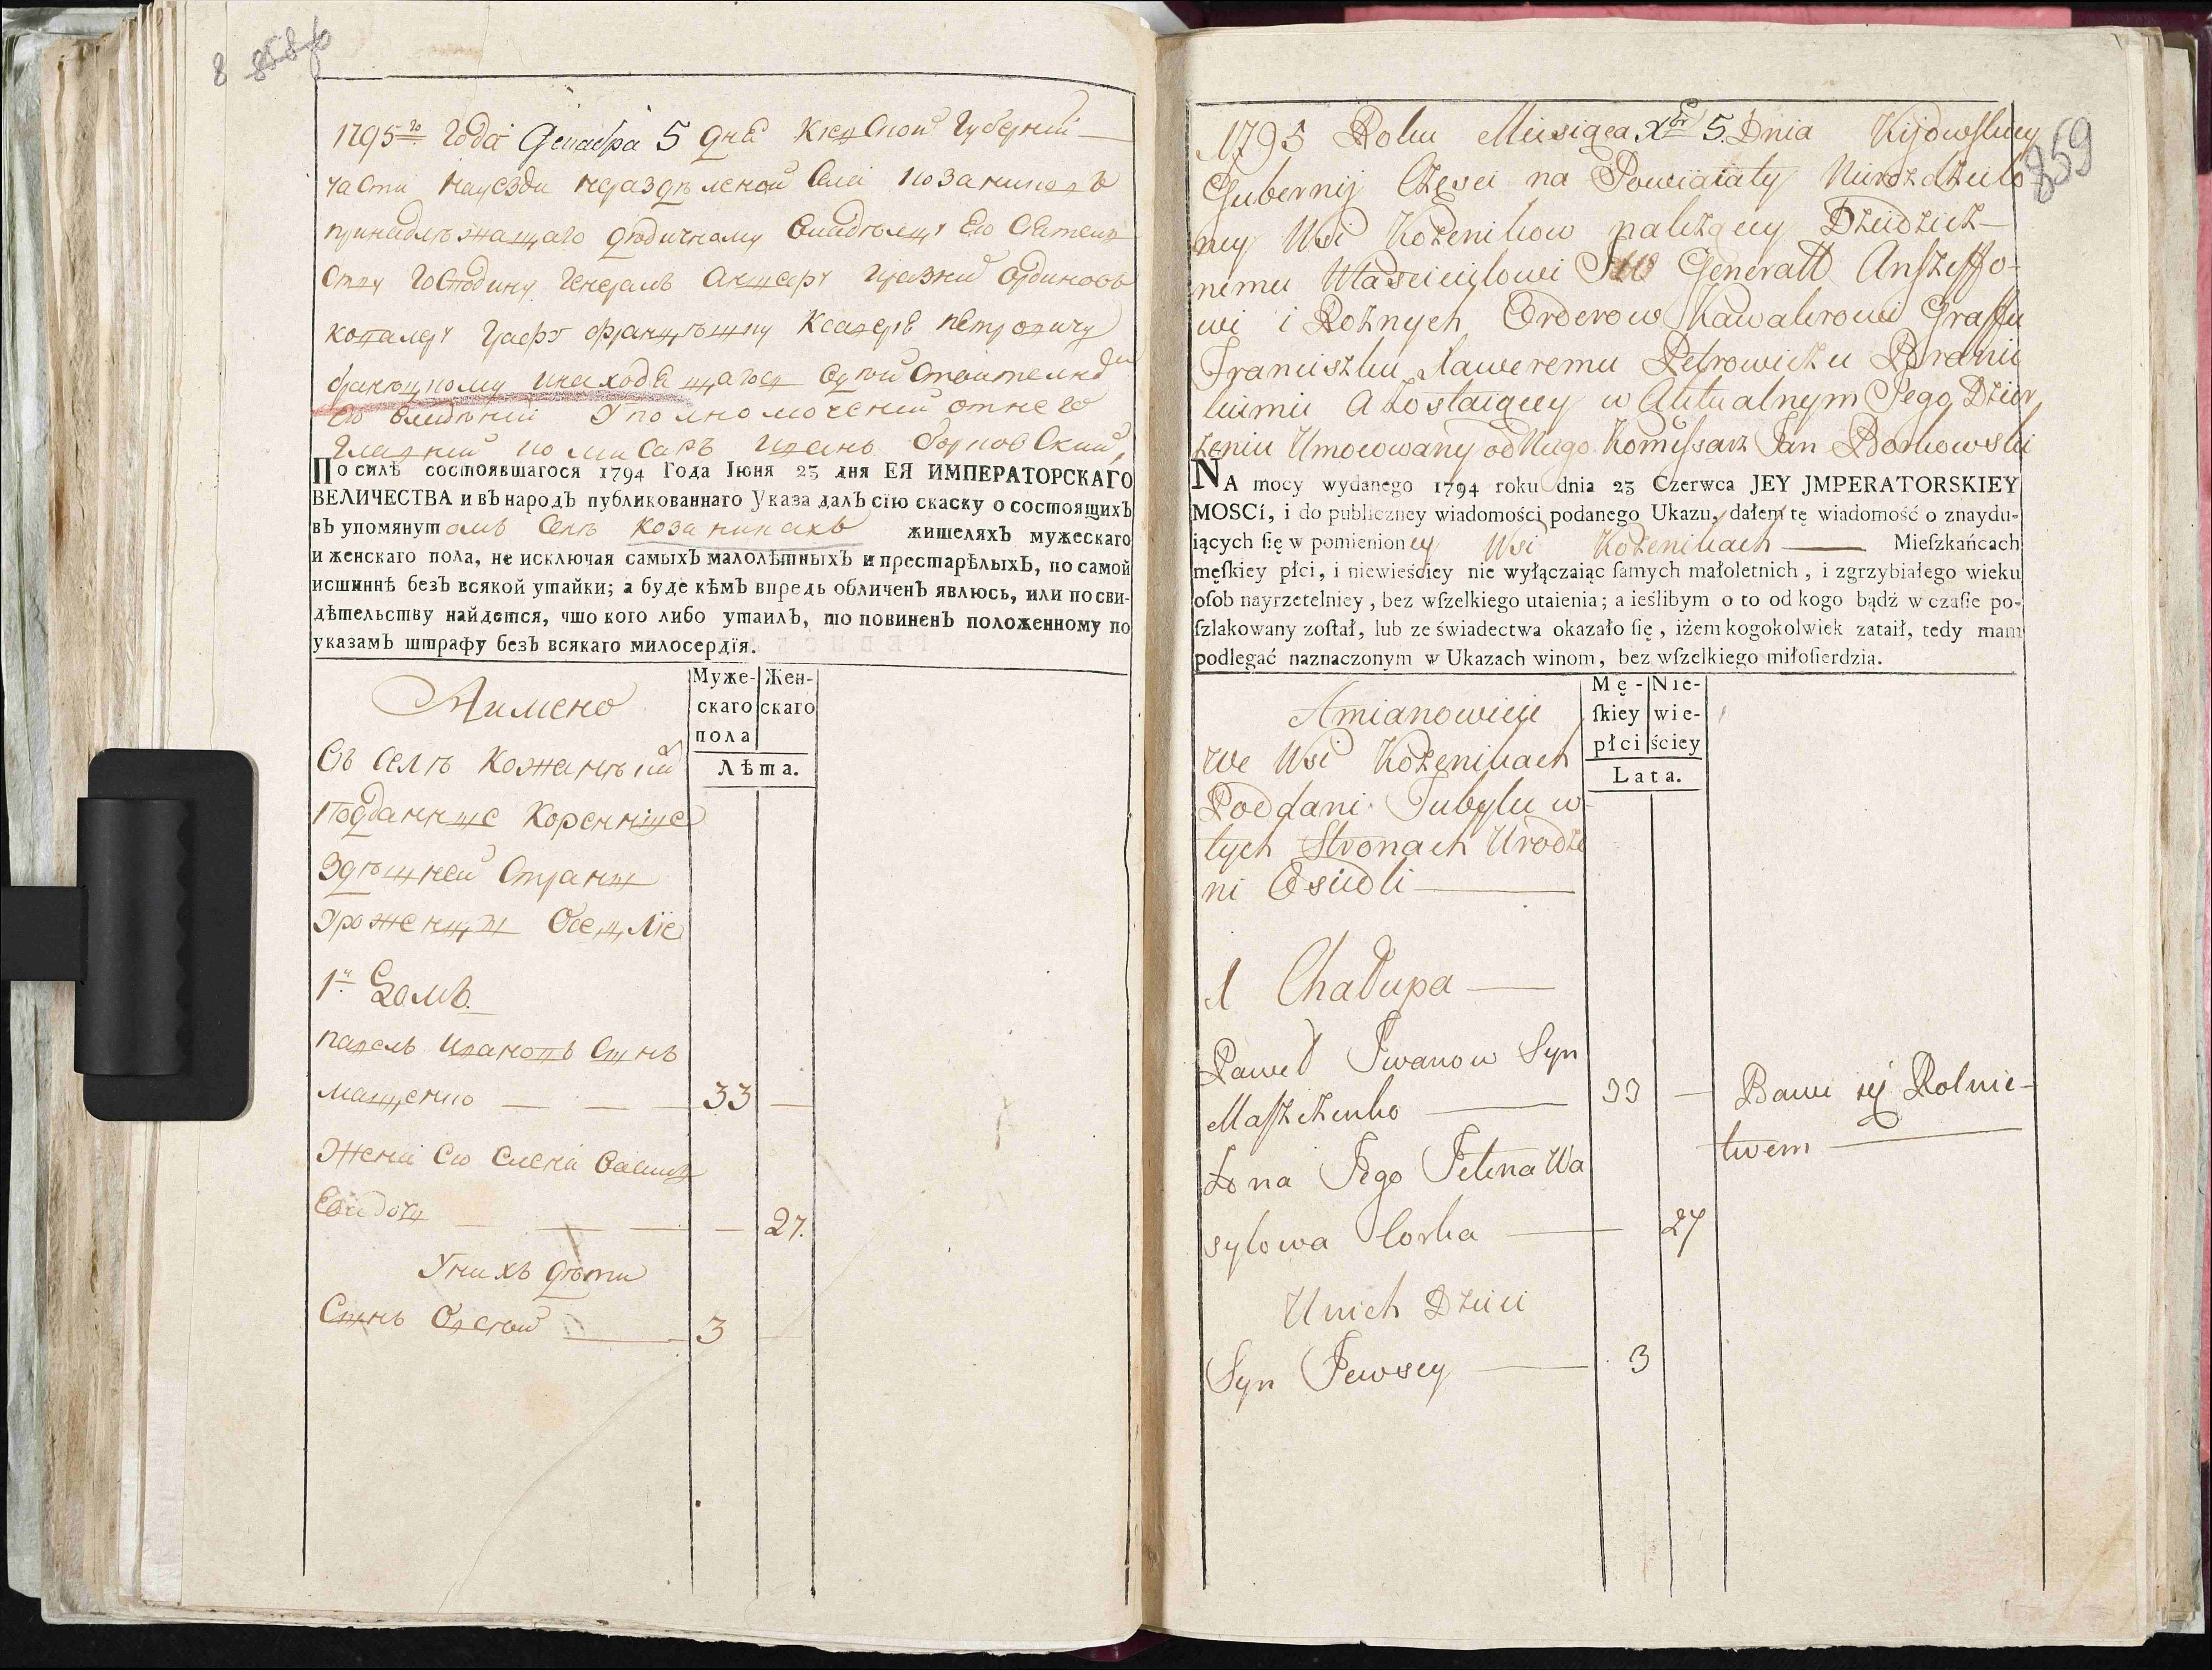 8 858 об
1795го Года Декабра 5 дня Киевской Губернии
части науезди неразделеной Села Козаникове
принадлежащаго дедичному Владелцу Его Сиятелн
ству Господину Генералъ Аншефу разних Ординовъ
ковалеру Графу Францышку Ксаверю Петровичу
браницкому инаходящагося вдействителном
Его владении Уполномоченний отнего
Главний комисаръ Иванъ Борковский,
По силѣ состоявшагося 1794 Года Іюня 23 дня ЕЯ ИМПЕРАТОРСКАГО
ВЕЛИЧЕСТВА и въ народъ публикованнаго Указа далъ сїю скаску о состоящихъ
въ упомянутомъ Селѣ Козаниках жителяхъ мужескаго
и женскаго пола, не исключая самыхъ малолѣтныхъ и престарѣлыхъ, по самой
истиннѣ безъ всякой утайки; а буде кѣмъ впредь обличенъ явлюсь, или по сви-
дѣтельству найдется, что кого либо утаилъ, то повиненъ положенному по
указамъ штрафу безъ всякаго милосердїя.
Аимено
Муже- Жен-
скаго скаго
пола
Лѣта.
Въ селѣ
Подданные Коренные
Здѣшней Страны
Уроженцы
1й Домъ.
Павелъ Ивановъ Сынъ
Мащенко — — — 33 —
Жена Его Елена Васил
— — — — 27.
Унихъ дѣти
Сынъ Овсѣй — 3
859
1795 Roku Miesiąca Xbr 5. Dnia Kijowskiey
Gubernij Części na Powiaiaty Nierozdzielo
ney Wsi Kożenikow należącey Dziedzicz-
nemu Włascicielowi JW Generałł Anszeffo-
wi i Rożnych Orderow Kawalerowi Graffu
Franciszku Xaweremu Petrowiczu Branic
kiemu a Zostaiącey w Aktualnym Jego Dzier
żeniu Umocowany od Niego Komissarz Jan Borkowski
NA mocy wydanego 1794 roku dnia 23 Czerwca JEY JMPERATORSKIEY
MOSCí, i do publiczney wiadomości podanego Ukazu, dałem tę wiadomość o znaydu-
iących ſię w pomienioney Wsi Kożenikach — Mieſzkańcach
męſkiey płci, i niewieściey nie wyłączaiąc ſamych małoletnich, i zgrzybiałego wieku
oſob nayrzetelniey, bez wſzelkiego utaienia; a ieślibym o to od kogo bądź w czaſie po-
ſzlakowany zoſtał, lub ze świadectwa okazało ſię, iżem kogokolwiek zataił, tedy mam
podlegać naznaczonym w Ukazach winom, bez wſzelkiego miłoſierdzia.
Amianowicie
Mę- Nie-
ſkiey wie-
płci ściey
Lata.
We Wsi Kożenikach
Poddani Tubylcu w
tych Stronach Urodze
ni Osiedli —
1 Chałupa —
Paweł Jwanow Syn
Maszczenko — 33 — Bawi się Rolnic-
twem —
Żona Jego Jelena Wa
sylowa Corka — 27
U nich Dzieci
Syn Jewsey — 3